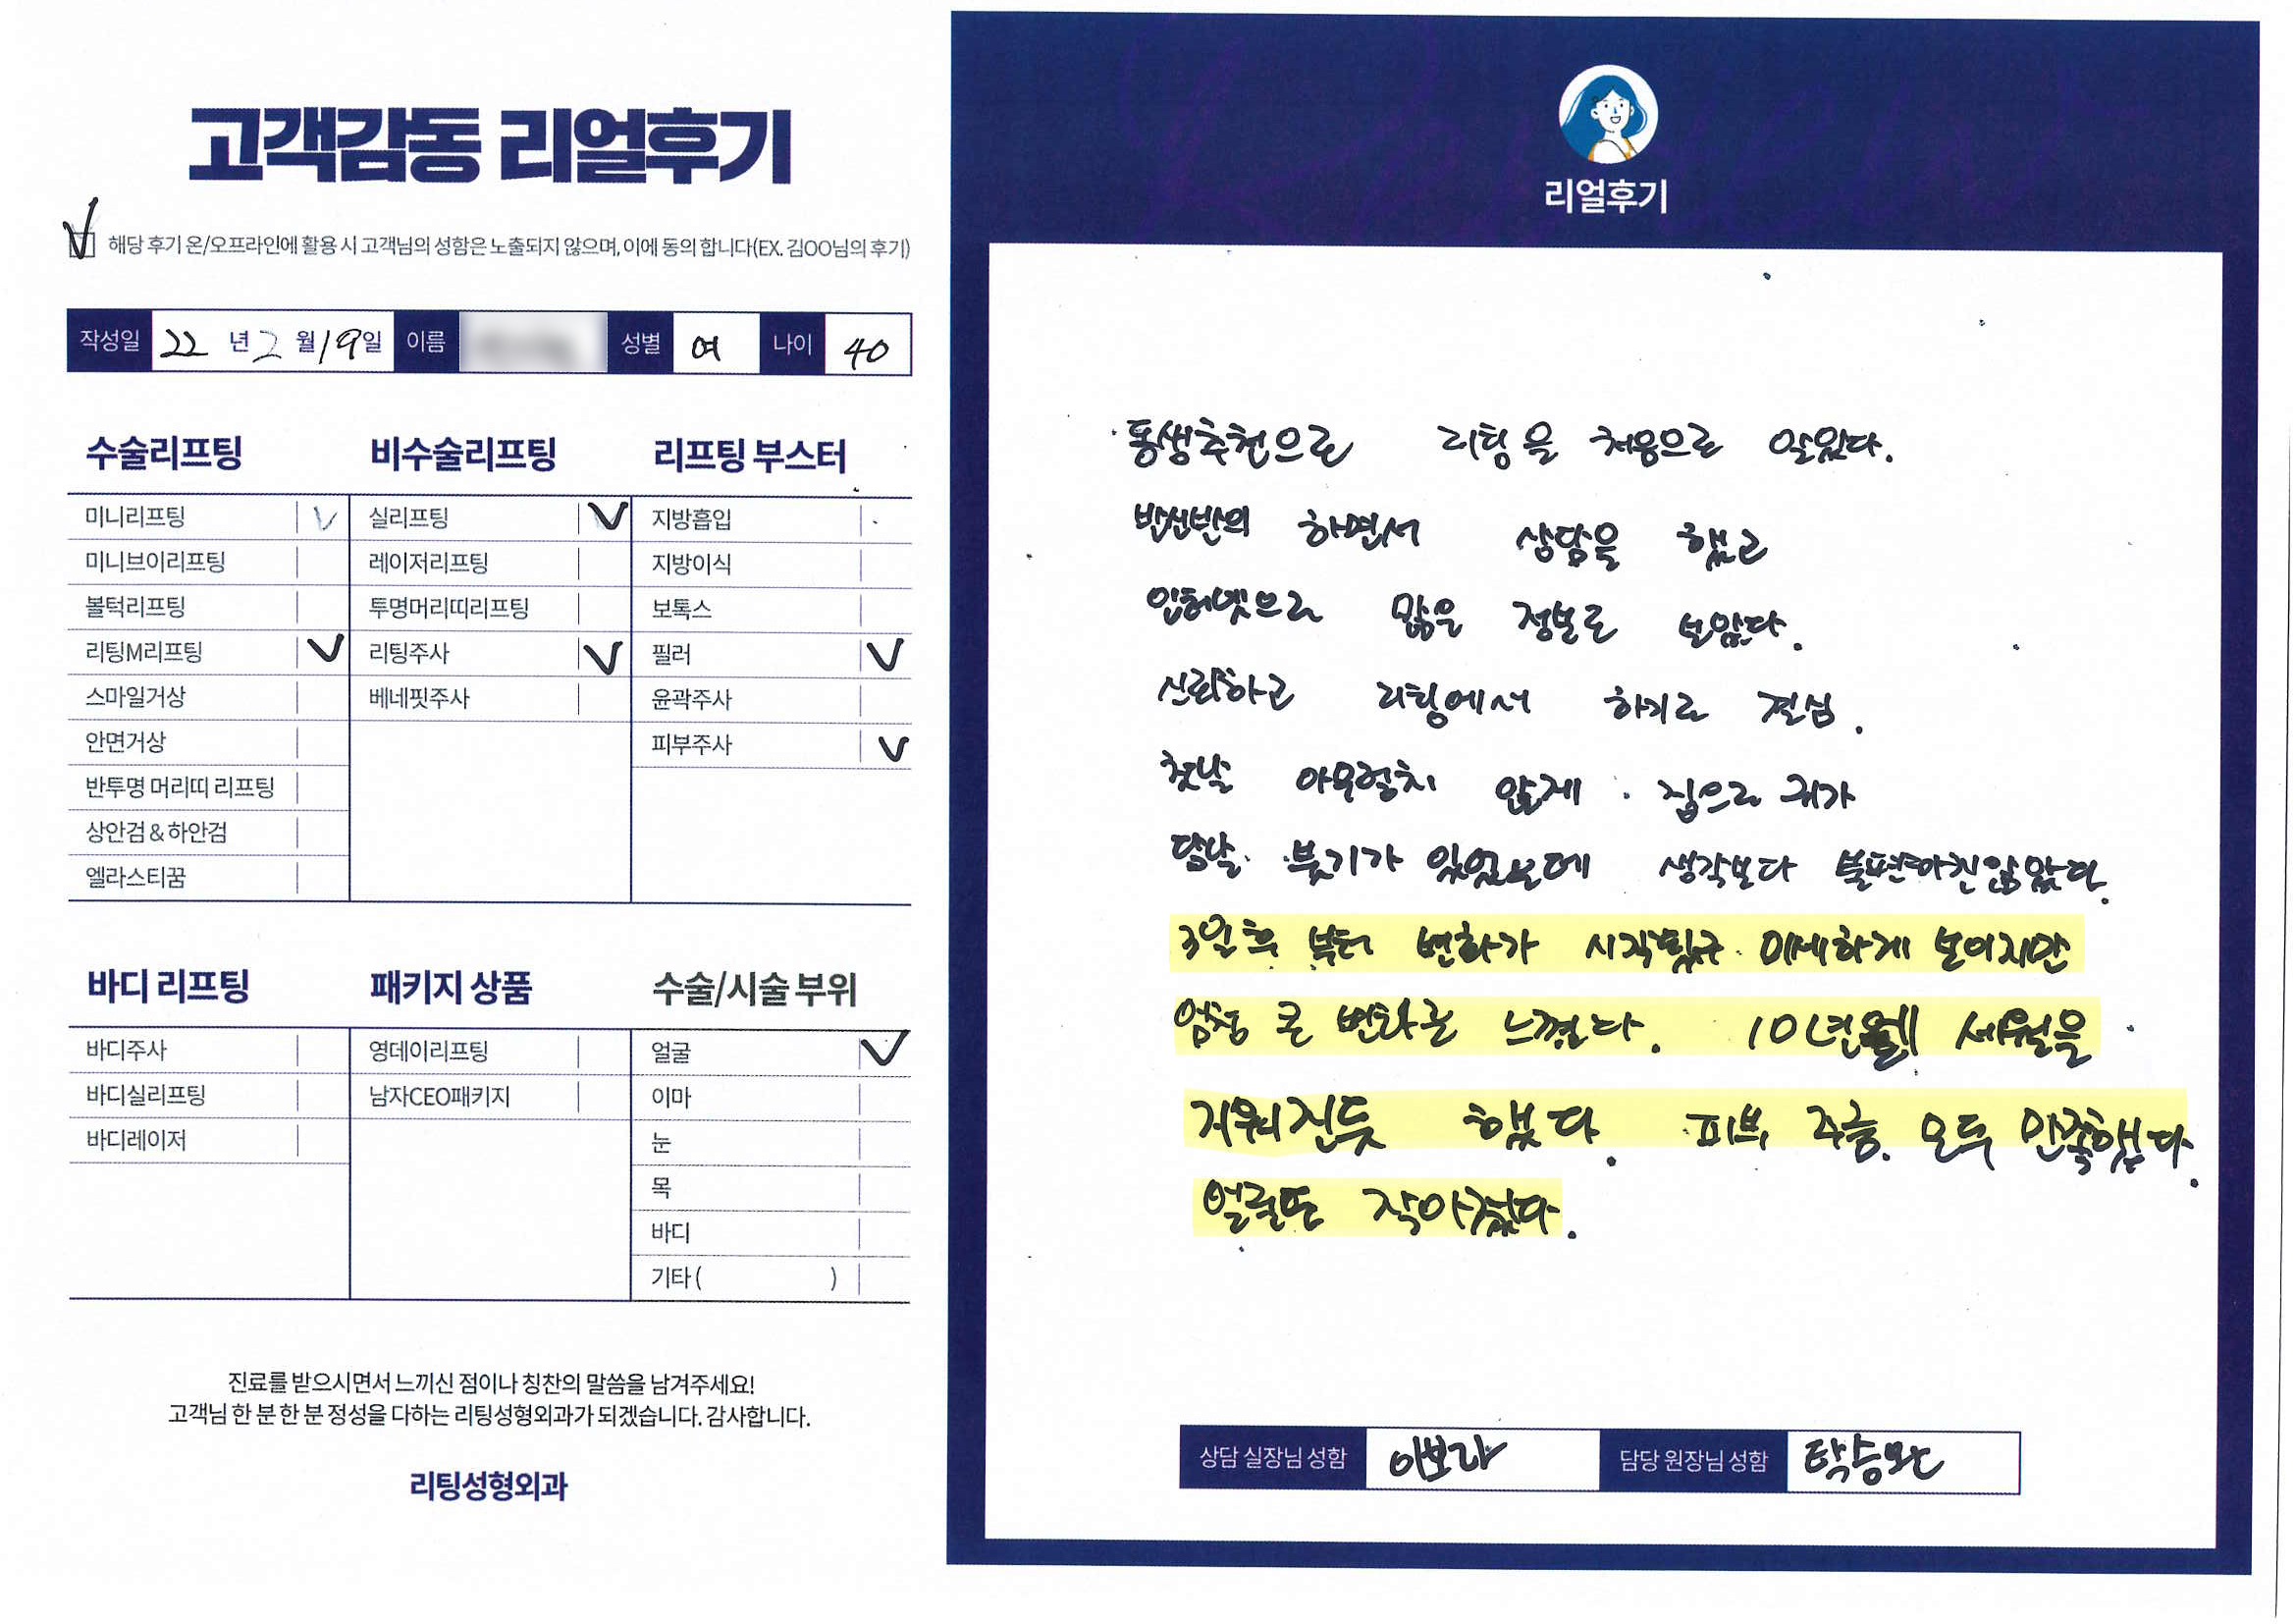 고객감동 리얼후기
해당 후기 온/오프라인에 활용 시 고객님의 성함은 노출되지 않으며, 이에 동의 합니다(EX. 김OO님의 후기)
작성일 22 년 2 월 19일 이름 성별 여 나이 40
수술리프팅
미니리프팅
미니브이리프팅
볼턱리프팅
리팅M리프팅
스마일거상
안면거상
반투명 머리띠 리프팅
상안검 & 하안검
엘라스티꿈
비수술리프팅
실리프팅
레이저리프팅
투명머리띠리프팅
리팅주사
베네핏주사
리프팅 부스터
지방흡입
지방이식
보톡스
필러
윤곽주사
피부주사
바디 리프팅
바디주사
바디실리프팅
바디레이저
패키지 상품
영데이리프팅
남자CEO패키지
수술/시술 부위
얼굴
이마
눈
목
바디
기타 ( )
진료를 받으시면서 느끼신 점이나 칭찬의 말씀을 남겨주세요!
고객님 한 분 한 분 정성을 다하는 리팅성형외과가 되겠습니다. 감사합니다.
리팅성형외과
리얼후기
동생추천으로 리팅을 처음으로 알았다.
반신반의 하면서 상담을 했고
인터넷으로 많은 정보로 보았다.
신뢰하고 리팅에서 하기로 결심.
첫날 아무렇치 않게 집으로 귀가
담날 붓기가 있었는데 생각보다 불편하진않았다.
3일후 부터 변화가 시작됬구 미세하게 보이지만
엄청 큰 변화를 느꼈다. 10년 세월을
지워진듯 했다. 피부 주름 모두 만족했다.
얼굴또 작아졌다.
상담 실장님 성함 이보라 담당 원장님 성함 탁승완